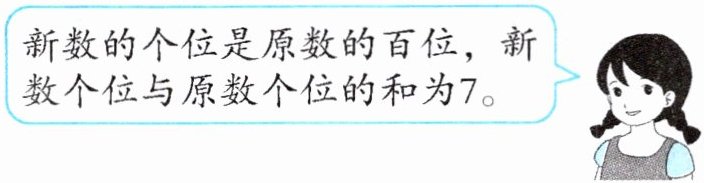 新数的个位是原数的百位，新
数个位与原数个位的和为7。